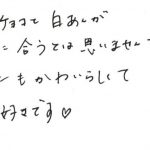 チョコで白あんが
に合うとは思いません
ンもかわいらしくて
好きです♡